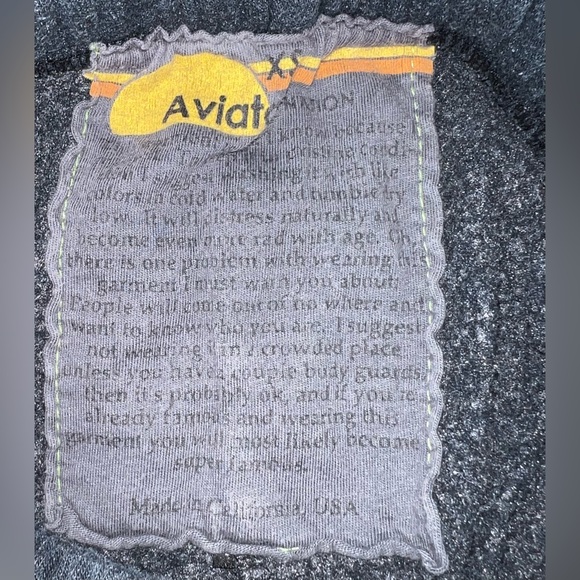 XS
Aviat
NATION
know because
pristine condi-
I suggest washing it with like
colors in cold water and tumble dry
low. It will distress naturally and
become even more rad with age. Oh,
there is one problem with wearing this
garment I must warn you about:
People will come out of no where and
want to know who you are. I suggest
not wearing it in a crowded place
unless you have a couple body guards,
then it's probably ok, and if you're
already famous and wearing this
garment you will most likely become
super famous.
Made in California, USA